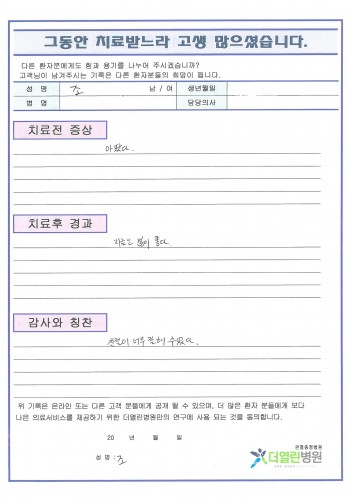 그동안 치료받느라 고생 많으셨습니다.
다른 환자분에게도 힘과 용기를 나누어 주시겠습니까?
고객님이 남겨주시는 기록은 다른 환자분들의 희망이 됩니다.
성 명 조 남 / 여 생년월일
병 명 담당의사
치료전 증상
아팠다.
치료후 경과
지금은 많이 좋다.
감사와 칭찬
너무 잘해 주셨다.
위 기록은 온라인 또는 다른 고객 분들에게 공개 될 수 있으며, 더 많은 환자 분들에게 보다
나은 의료서비스를 제공하기 위한 더열린병원만의 연구에 사용 되는 것을 동의합니다.
20 년 월 일
성 명 : 조
관절중점병원
더열린병원